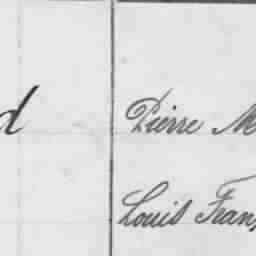 d Pierre M
Louis Fran